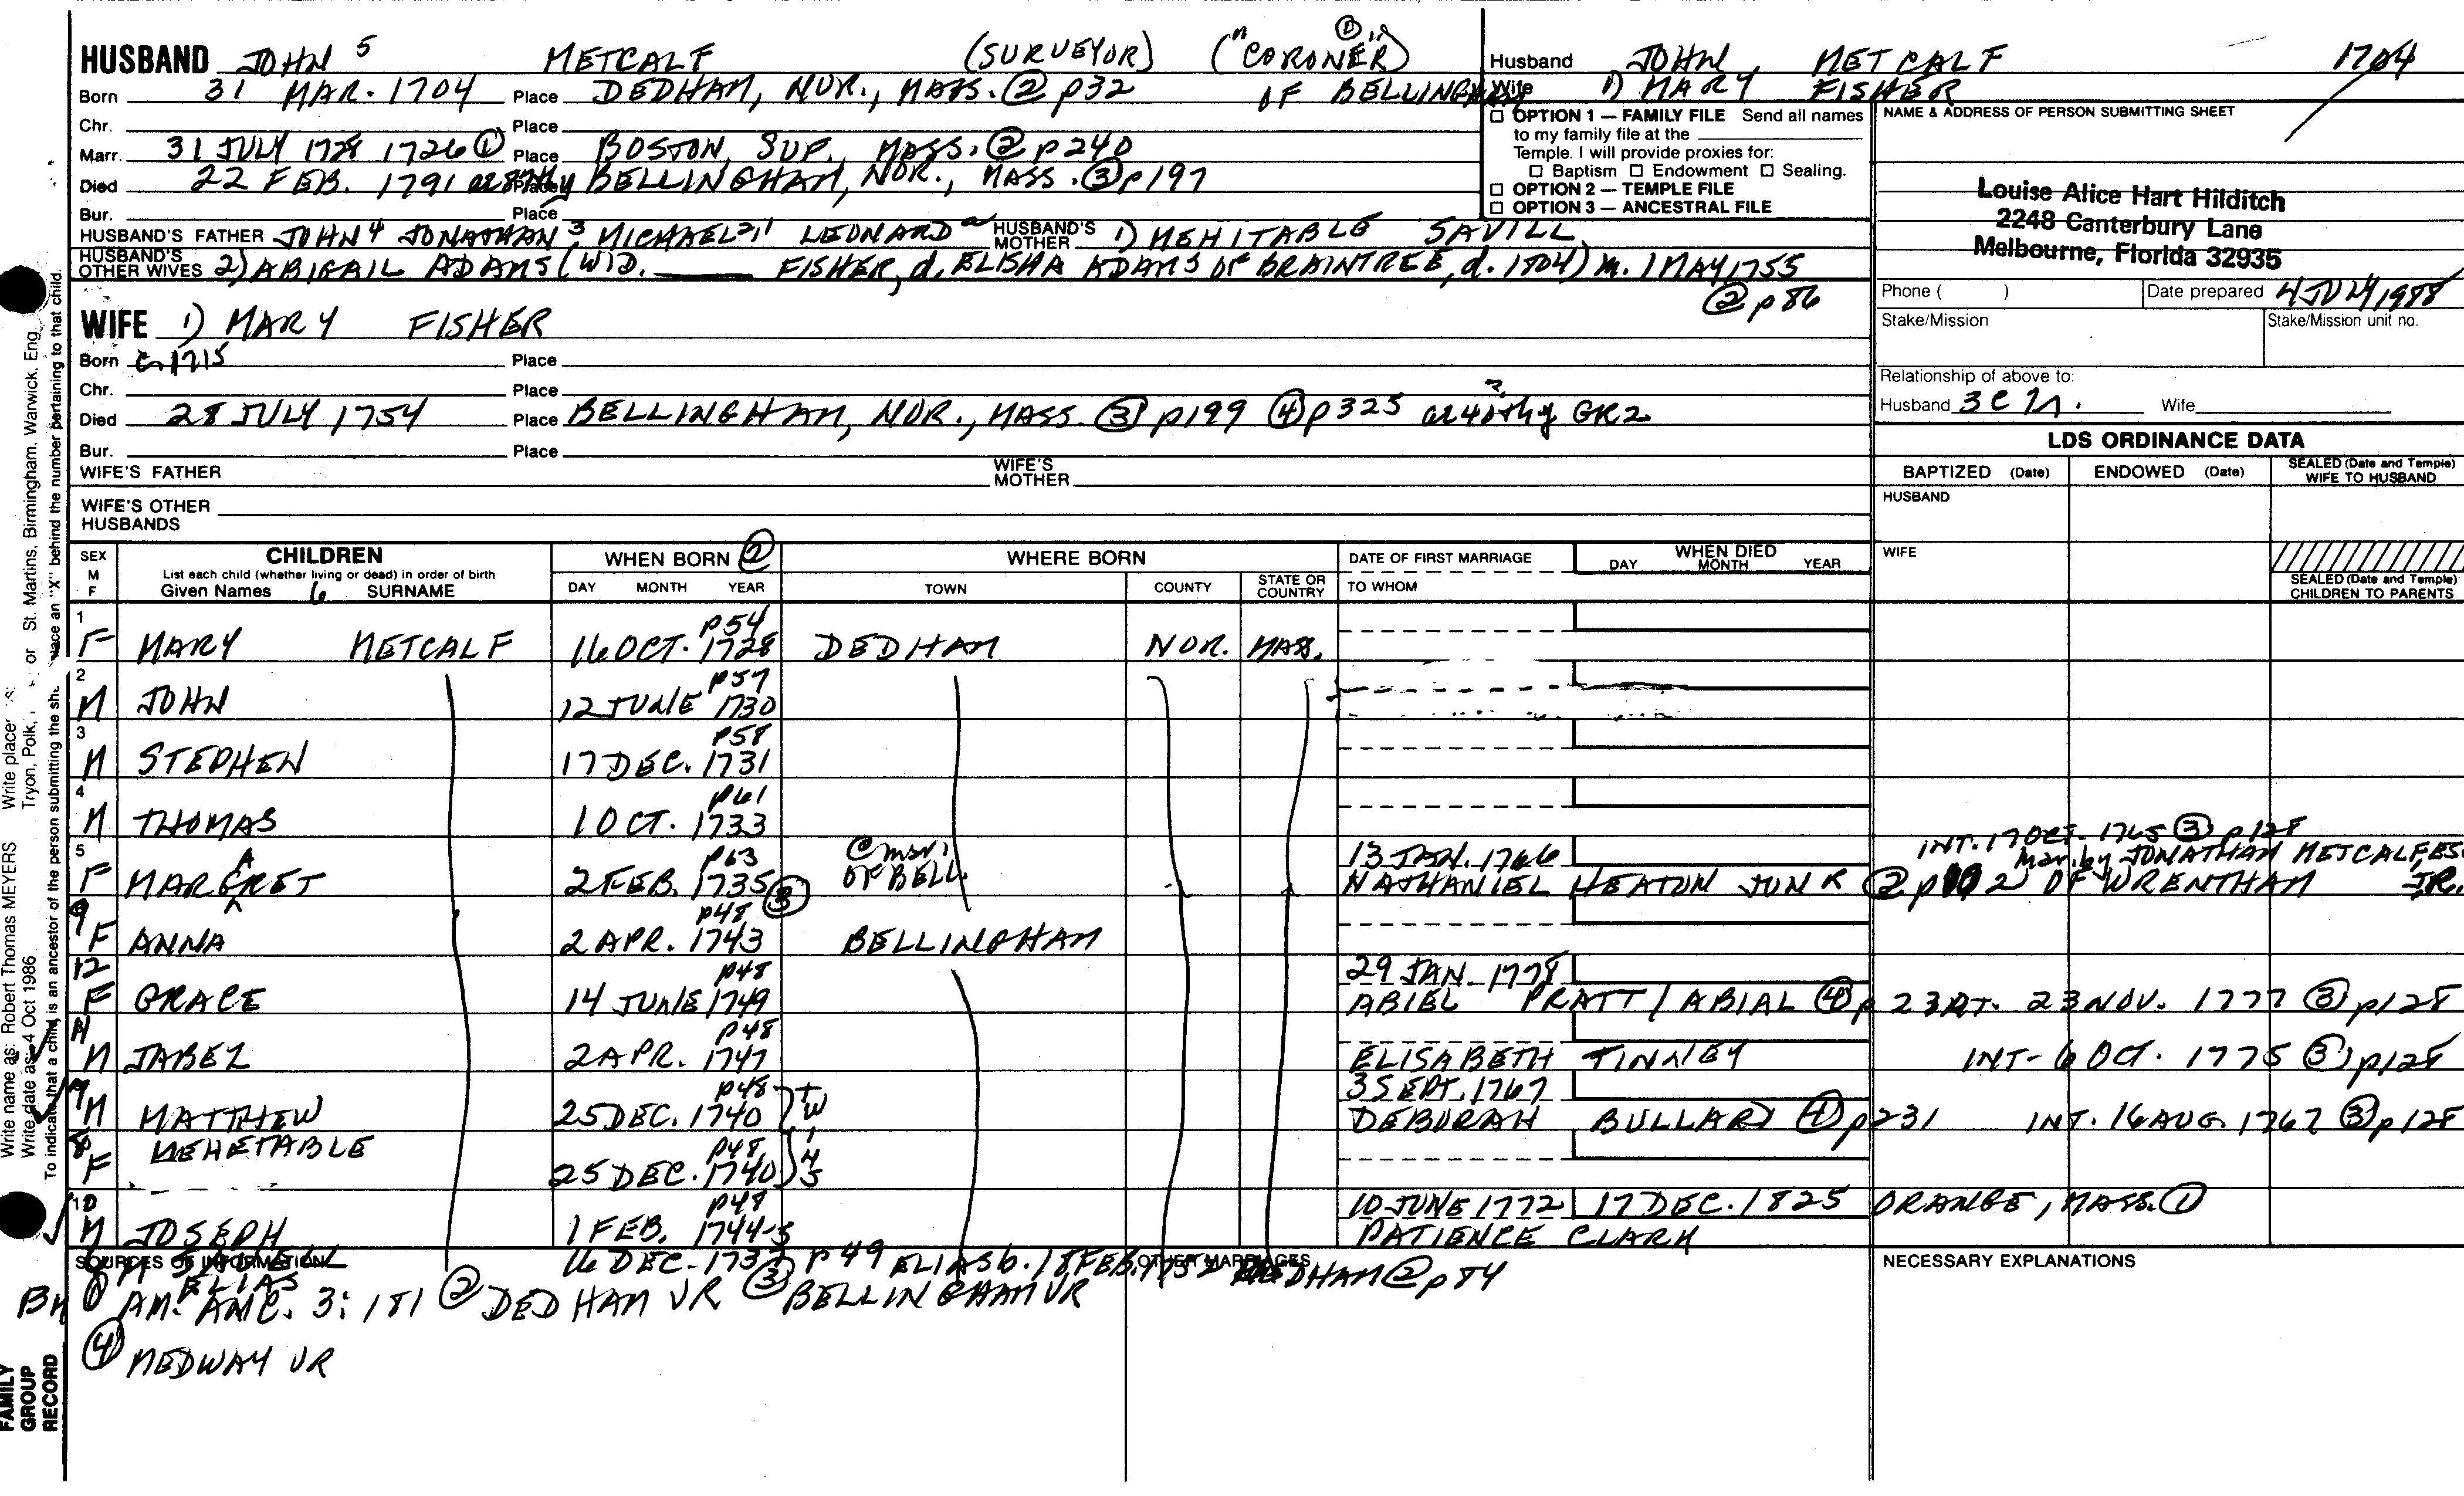 HUSBAND JOHN 5 METCALF (SURVEYOR) ("CORONER") ①
Born 31 MAR. 1704 Place DEDHAM, NOR., MASS. ② p32 OF BELLINGHAM
Chr. Place
Marr. 31 JULY 1728 1726 ① Place BOSTON, SUF., MASS. ② p240
Died 22 FEB. 1791 Place BELLINGHAM, NOR., MASS. ③ p197
Bur. Place
HUSBAND'S FATHER JOHN 4 JONATHAN 3, MICHAEL 2,1 LEONARD a HUSBAND'S MOTHER 1) MEHITABLE SAVILL
HUSBAND'S OTHER WIVES 2) ABIGAIL ADAMS (WID. ____ FISHER, d. ELISHA ADAMS OF BRAINTREE, d. 1804) m. 1 MAY 1755
② p86
Husband JOHN METCALF 1704
Wife 1) MARY FISHER
☐ OPTION 1 — FAMILY FILE Send all names
to my family file at the
Temple. I will provide proxies for:
☐ Baptism ☐ Endowment ☐ Sealing.
☐ OPTION 2 — TEMPLE FILE
☐ OPTION 3 — ANCESTRAL FILE
NAME & ADDRESS OF PERSON SUBMITTING SHEET
Louise Alice Hart Hilditch
2248 Canterbury Lane
Melbourne, Florida 32935
Phone ( ) Date prepared 4 JULY 1988
Stake/Mission Stake/Mission unit no.
Relationship of above to:
Husband 3C Wife
WIFE 1) MARY FISHER
Born c. 1715 Place
Chr. Place
Died 28 JULY 1754 Place BELLINGHAM, NOR., MASS. ③ p199 ④ p325 GR2
Bur. Place
WIFE'S FATHER WIFE'S MOTHER
WIFE'S OTHER HUSBANDS
LDS ORDINANCE DATA
BAPTIZED (Date) ENDOWED (Date) SEALED (Date and Temple) WIFE TO HUSBAND
HUSBAND
WIFE
SEALED (Date and Temple) CHILDREN TO PARENTS
SEX M F CHILDREN WHEN BORN ② WHERE BORN DATE OF FIRST MARRIAGE WHEN DIED
List each child (whether living or dead) in order of birth
Given Names 6 SURNAME DAY MONTH YEAR TOWN COUNTY STATE OR COUNTRY TO WHOM DAY MONTH YEAR
1 F MARY METCALF 16 OCT. 1728 p54 DEDHAM NOR. MASS.
2 M JOHN 12 JUNE 1730 p57
3 M STEPHEN 17 DEC. 1731 p58
4 M THOMAS 1 OCT. 1733 p61
5 F MARGRET A 2 FEB. 1735 p63 OF BELL. 13 JAN. 1766 INT. 17 OCT. 1765 ③ p128
Mar. by JONATHAN METCALF ESQ JR.
NATHANIEL HEATON JUN R ② OF WRENTHAM
9 F ANNA 2 APR. 1743 p48 ③ BELLINGHAM
12 F GRACE 14 JUNE 1749 p48 29 JAN. 1778
ABIEL PRATT / ABIAL ④ INT. 23 NOV. 1777 ③ p128
11 M JABEZ 2 APR. 1747 p48 ELISABETH TINNEY INT- 6 OCT. 1775 ③ p128
7 M MATTHEW 25 DEC. 1740 p48 TWINS 3 SEPT. 1767
DEBORAH BULLARD ④ p231 INT. 16 AUG. 1767 ③ p128
8 F MEHETABLE 25 DEC. 1740 p48
10 M JOSEPH 1 FEB. 1744-5 p48 10 JUNE 1772 17 DEC. 1825 ORANGE, MASS. ①
PATIENCE CLARK
SOURCES OF INFORMATION OTHER MARRIAGES NECESSARY EXPLANATIONS
6 M 16 DEC. 1737 p49 ELIAS b. 18 FEB. DEDHAM ② p84
ELIAS
① AM. ANC. 3:181 ② DEDHAM VR ③ BELLINGHAM VR
④ MEDWAY VR
Write name as: Robert Thomas MEYERS
Write date as: 4 Oct 1986
Tryon, Polk, or St. Martins, Birmingham, Warwick, Eng
To indicate that a child is an ancestor of the person submitting the place an "X" behind the number pertaining to that child.
FAMILY
GROUP
RECORD